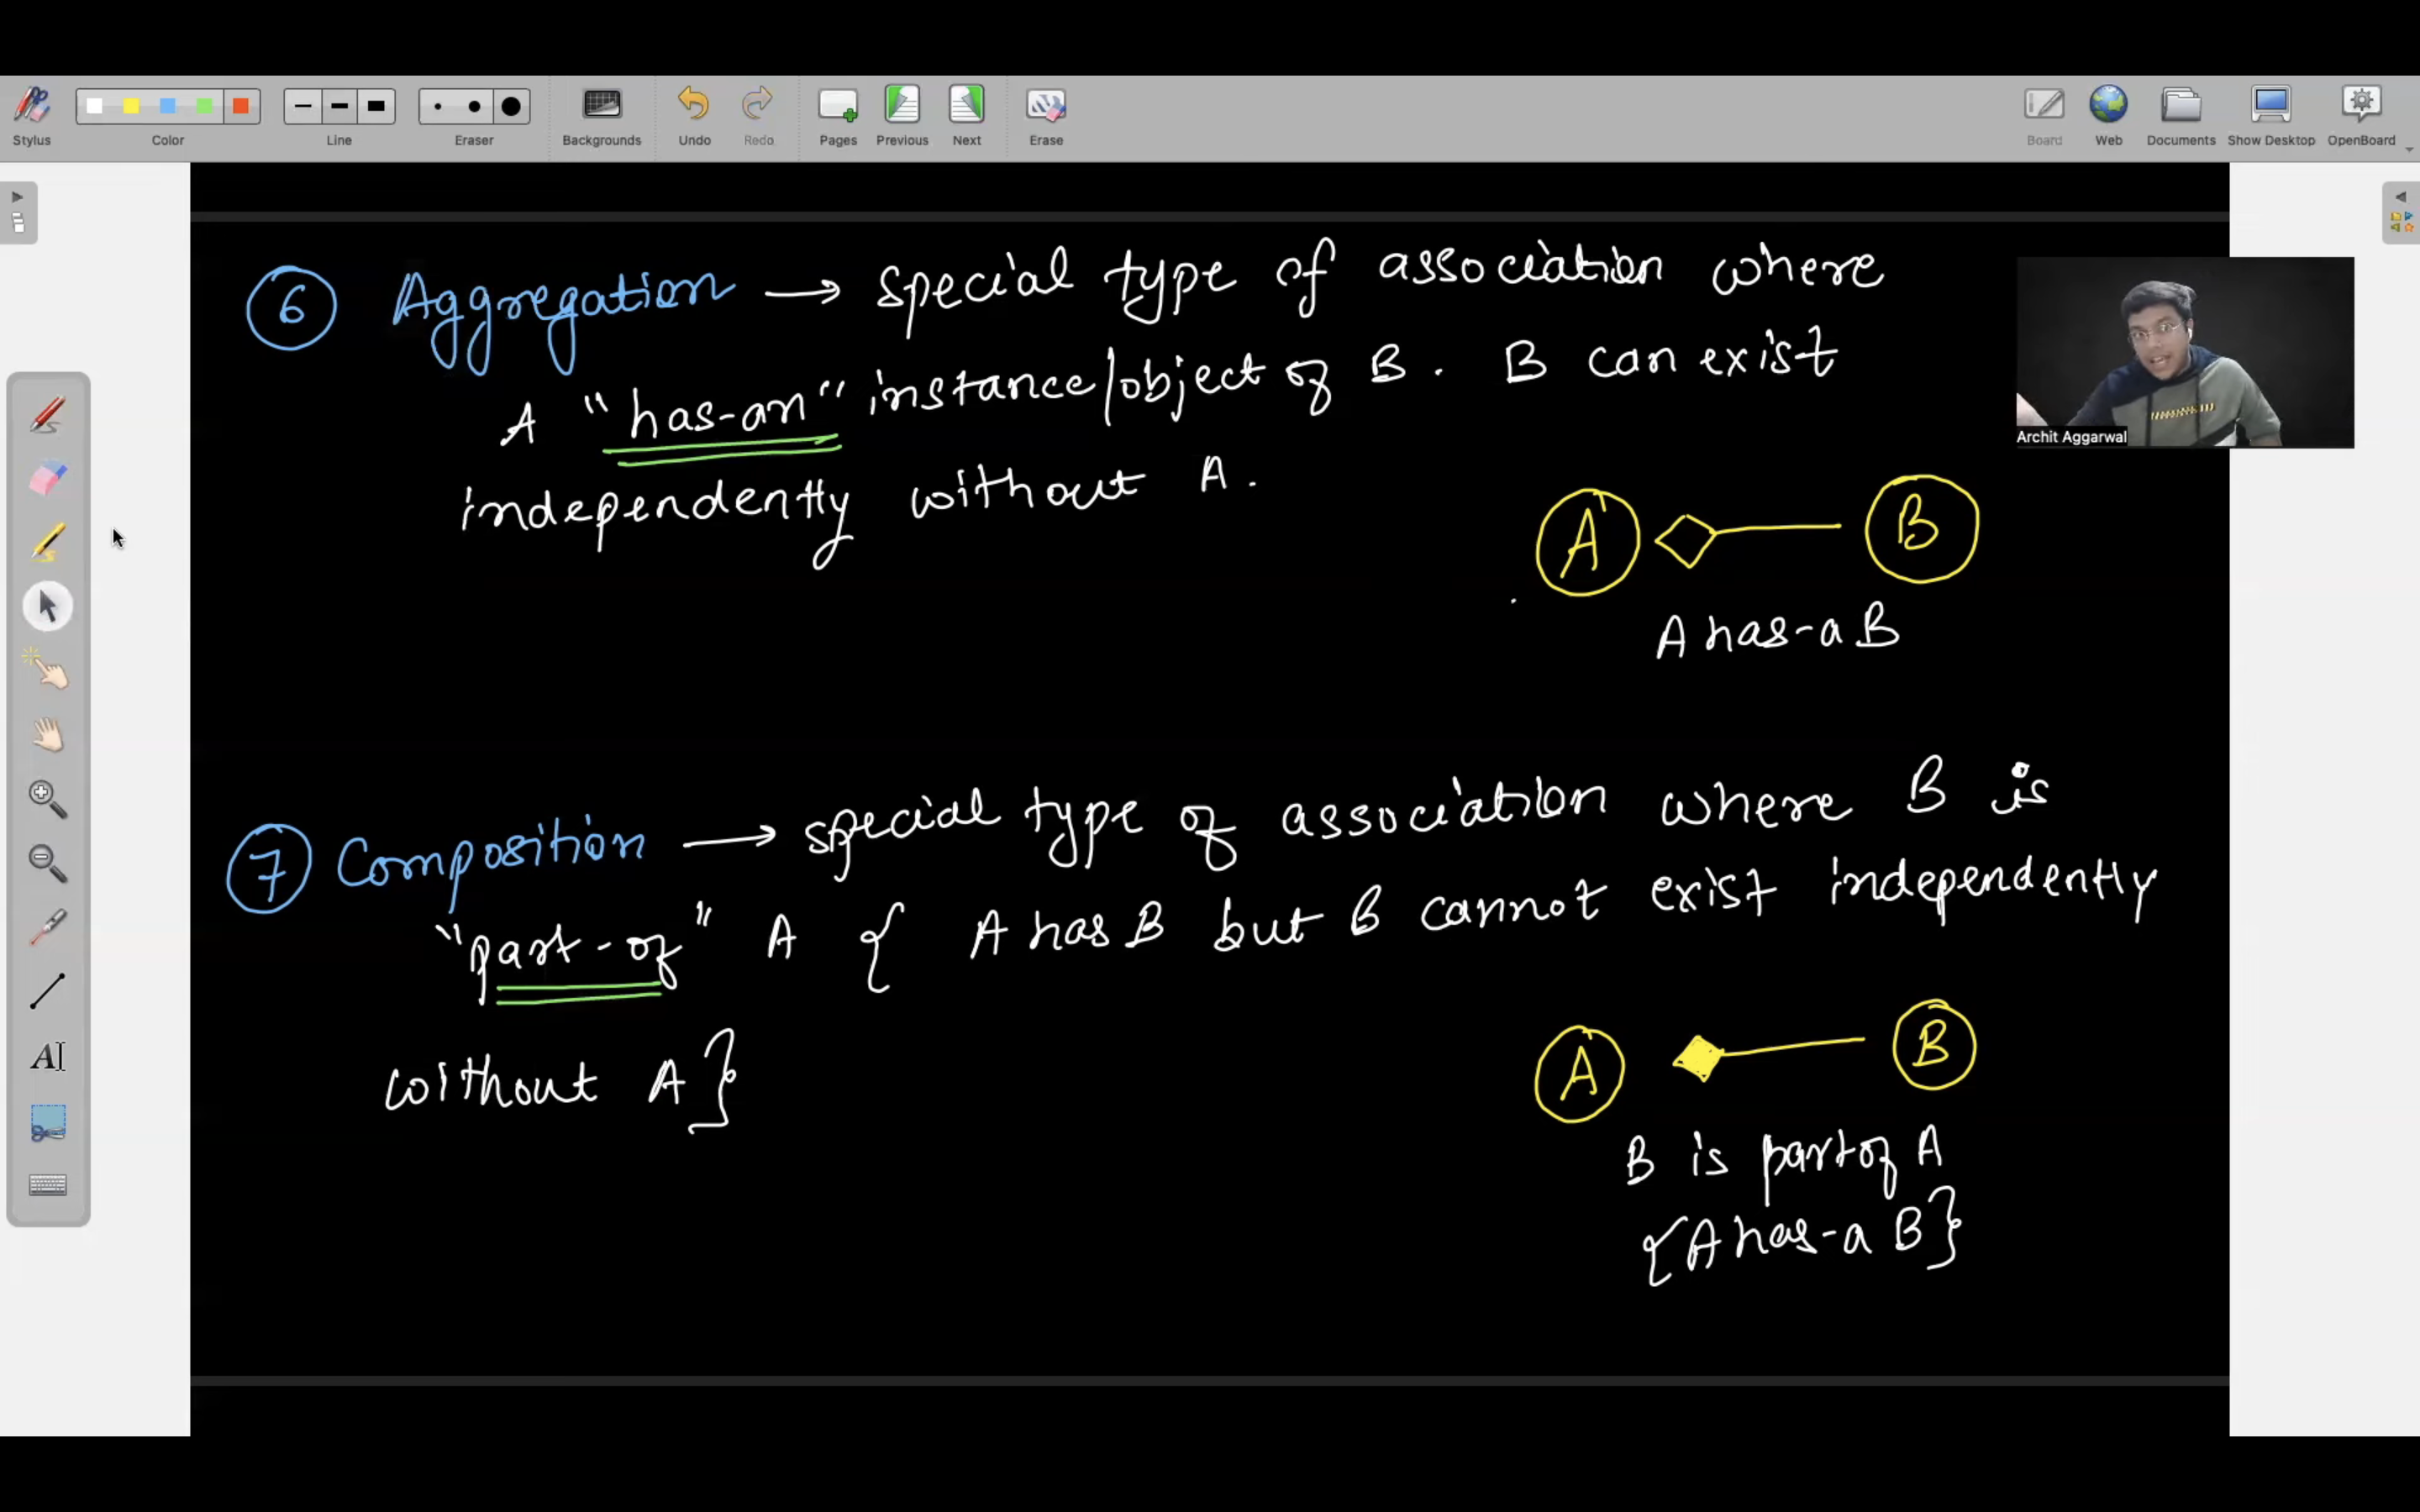 Stylus
Color
Line
Eraser
Backgrounds
Undo
Redo
Pages
Previous
Next
Erase
Board
Web
Documents
Show Desktop
OpenBoard
6 Aggregation → special type of association where
A "has-an" instance/object of B. B can exist
independently without A.
A B
A has-a B
Archit Aggarwal
7 Composition → special type of association where B is
"part-of" A { A has B but B cannot exist independently
without A}
A B
B is part of A
{A has-a B}
A